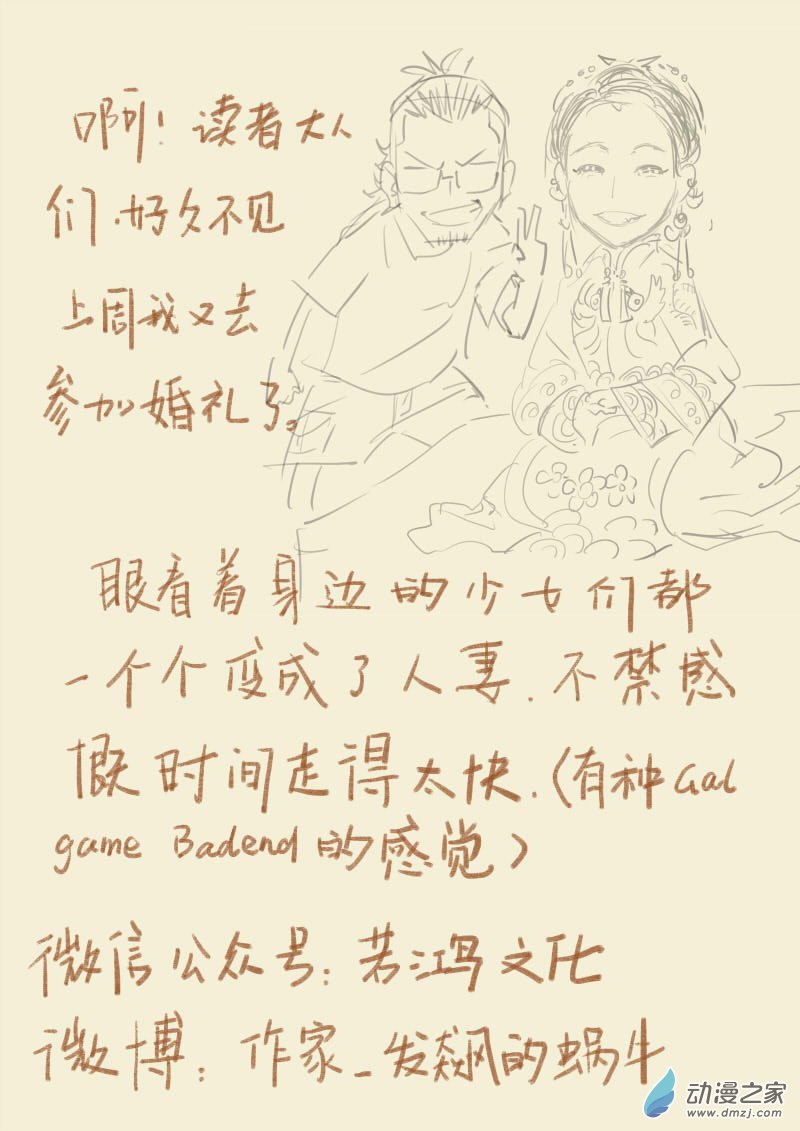 啊！读者大人
们，好久不见
上周我又去
参加婚礼了。
眼看着身边的少女们都
一个个变成了人妻，不禁感
慨时间走得太快，（有种Gal
game Badend的感觉）
微信公众号：若鸿文化
微博：作家_发飙的蜗牛
动漫之家
www.dmzj.com